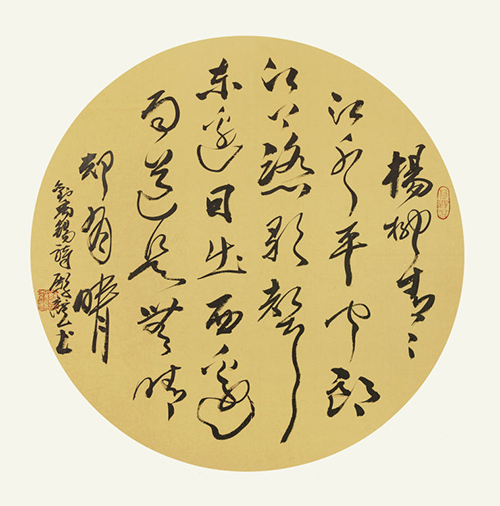 楊柳青〻
江水平闻郎
江上踏歌聲
东邊日出西邊
雨道是無晴
却有晴
劉禹錫詩
书